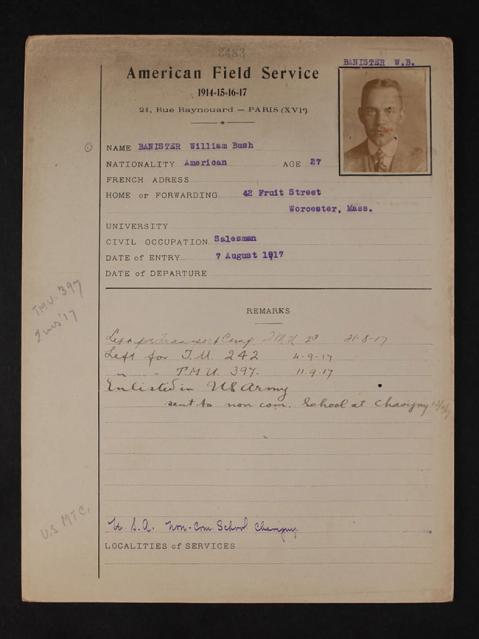 2483
BANISTER W.B.
American Field Service
1914-15-16-17
21, Rue Raynouard — PARIS (XVIe)
NAME BANISTER William Bush
NATIONALITY American AGE 27
FRENCH ADRESS
HOME or FORWARDING 42 Fruit Street
Worcester, Mass.
UNIVERSITY
CIVIL OCCUPATION Salesman
DATE of ENTRY 7 August 1917
DATE of DEPARTURE
TMU-397
REMARKS
Left for Transport Camp 21-8-17
Left for T.U. 242 4-9-17
" " T.M.U. 397. 11.9.17
Enlisted in US Army
sent to non com. School at Chavigny
U.S. MTC.
U.S.A. Non-Com School Chavigny
LOCALITIES of SERVICES